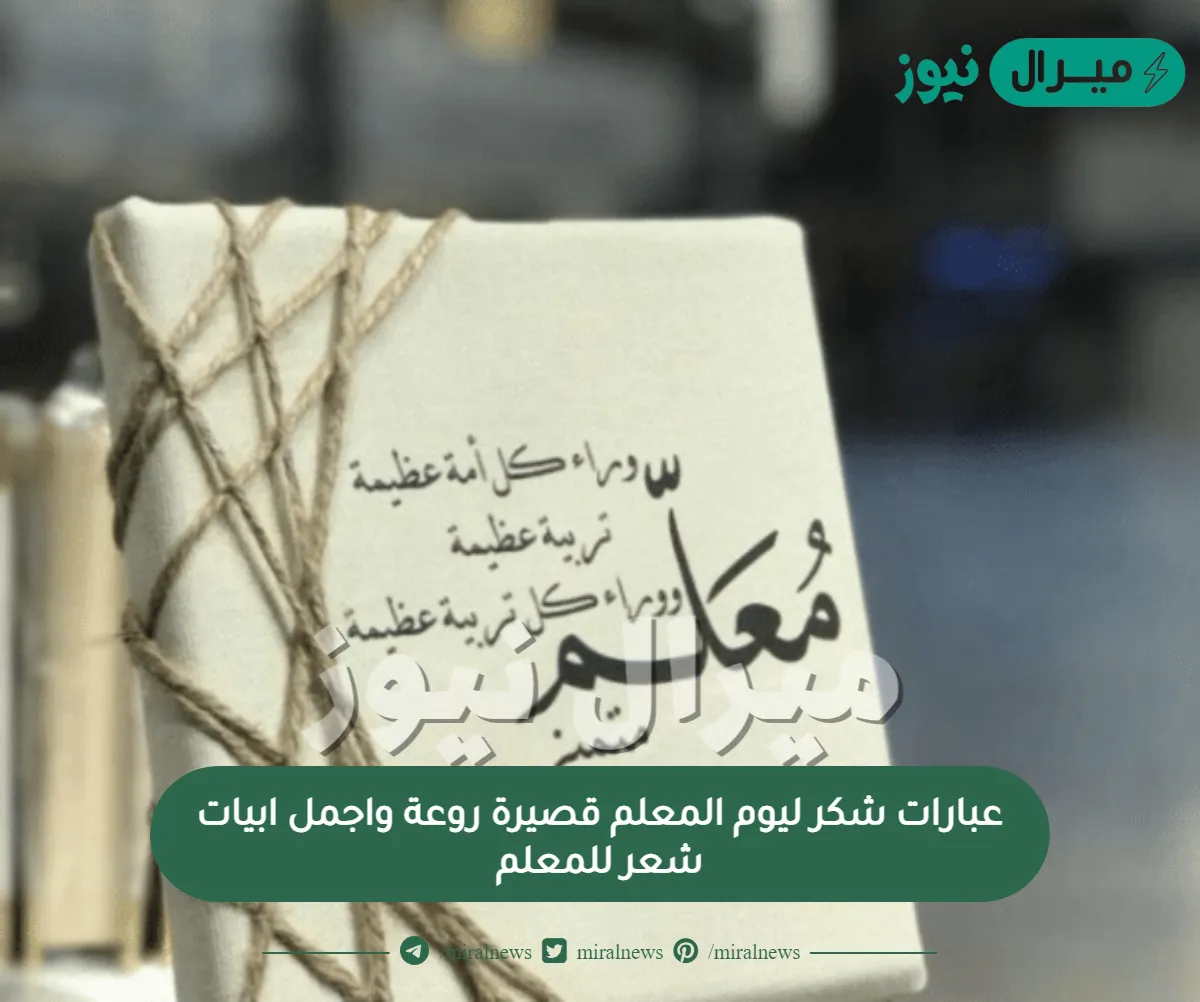 ميرال نيوز
وراء كل أمة عظيمة
تربية عظيمة
ووراء كل تربية عظيمة
مُعلّم
متميز
ميرال نيوز
عبارات شكر ليوم المعلم قصيرة روعة واجمل ابيات
شعر للمعلم
/miralnews miralnews /miralnews